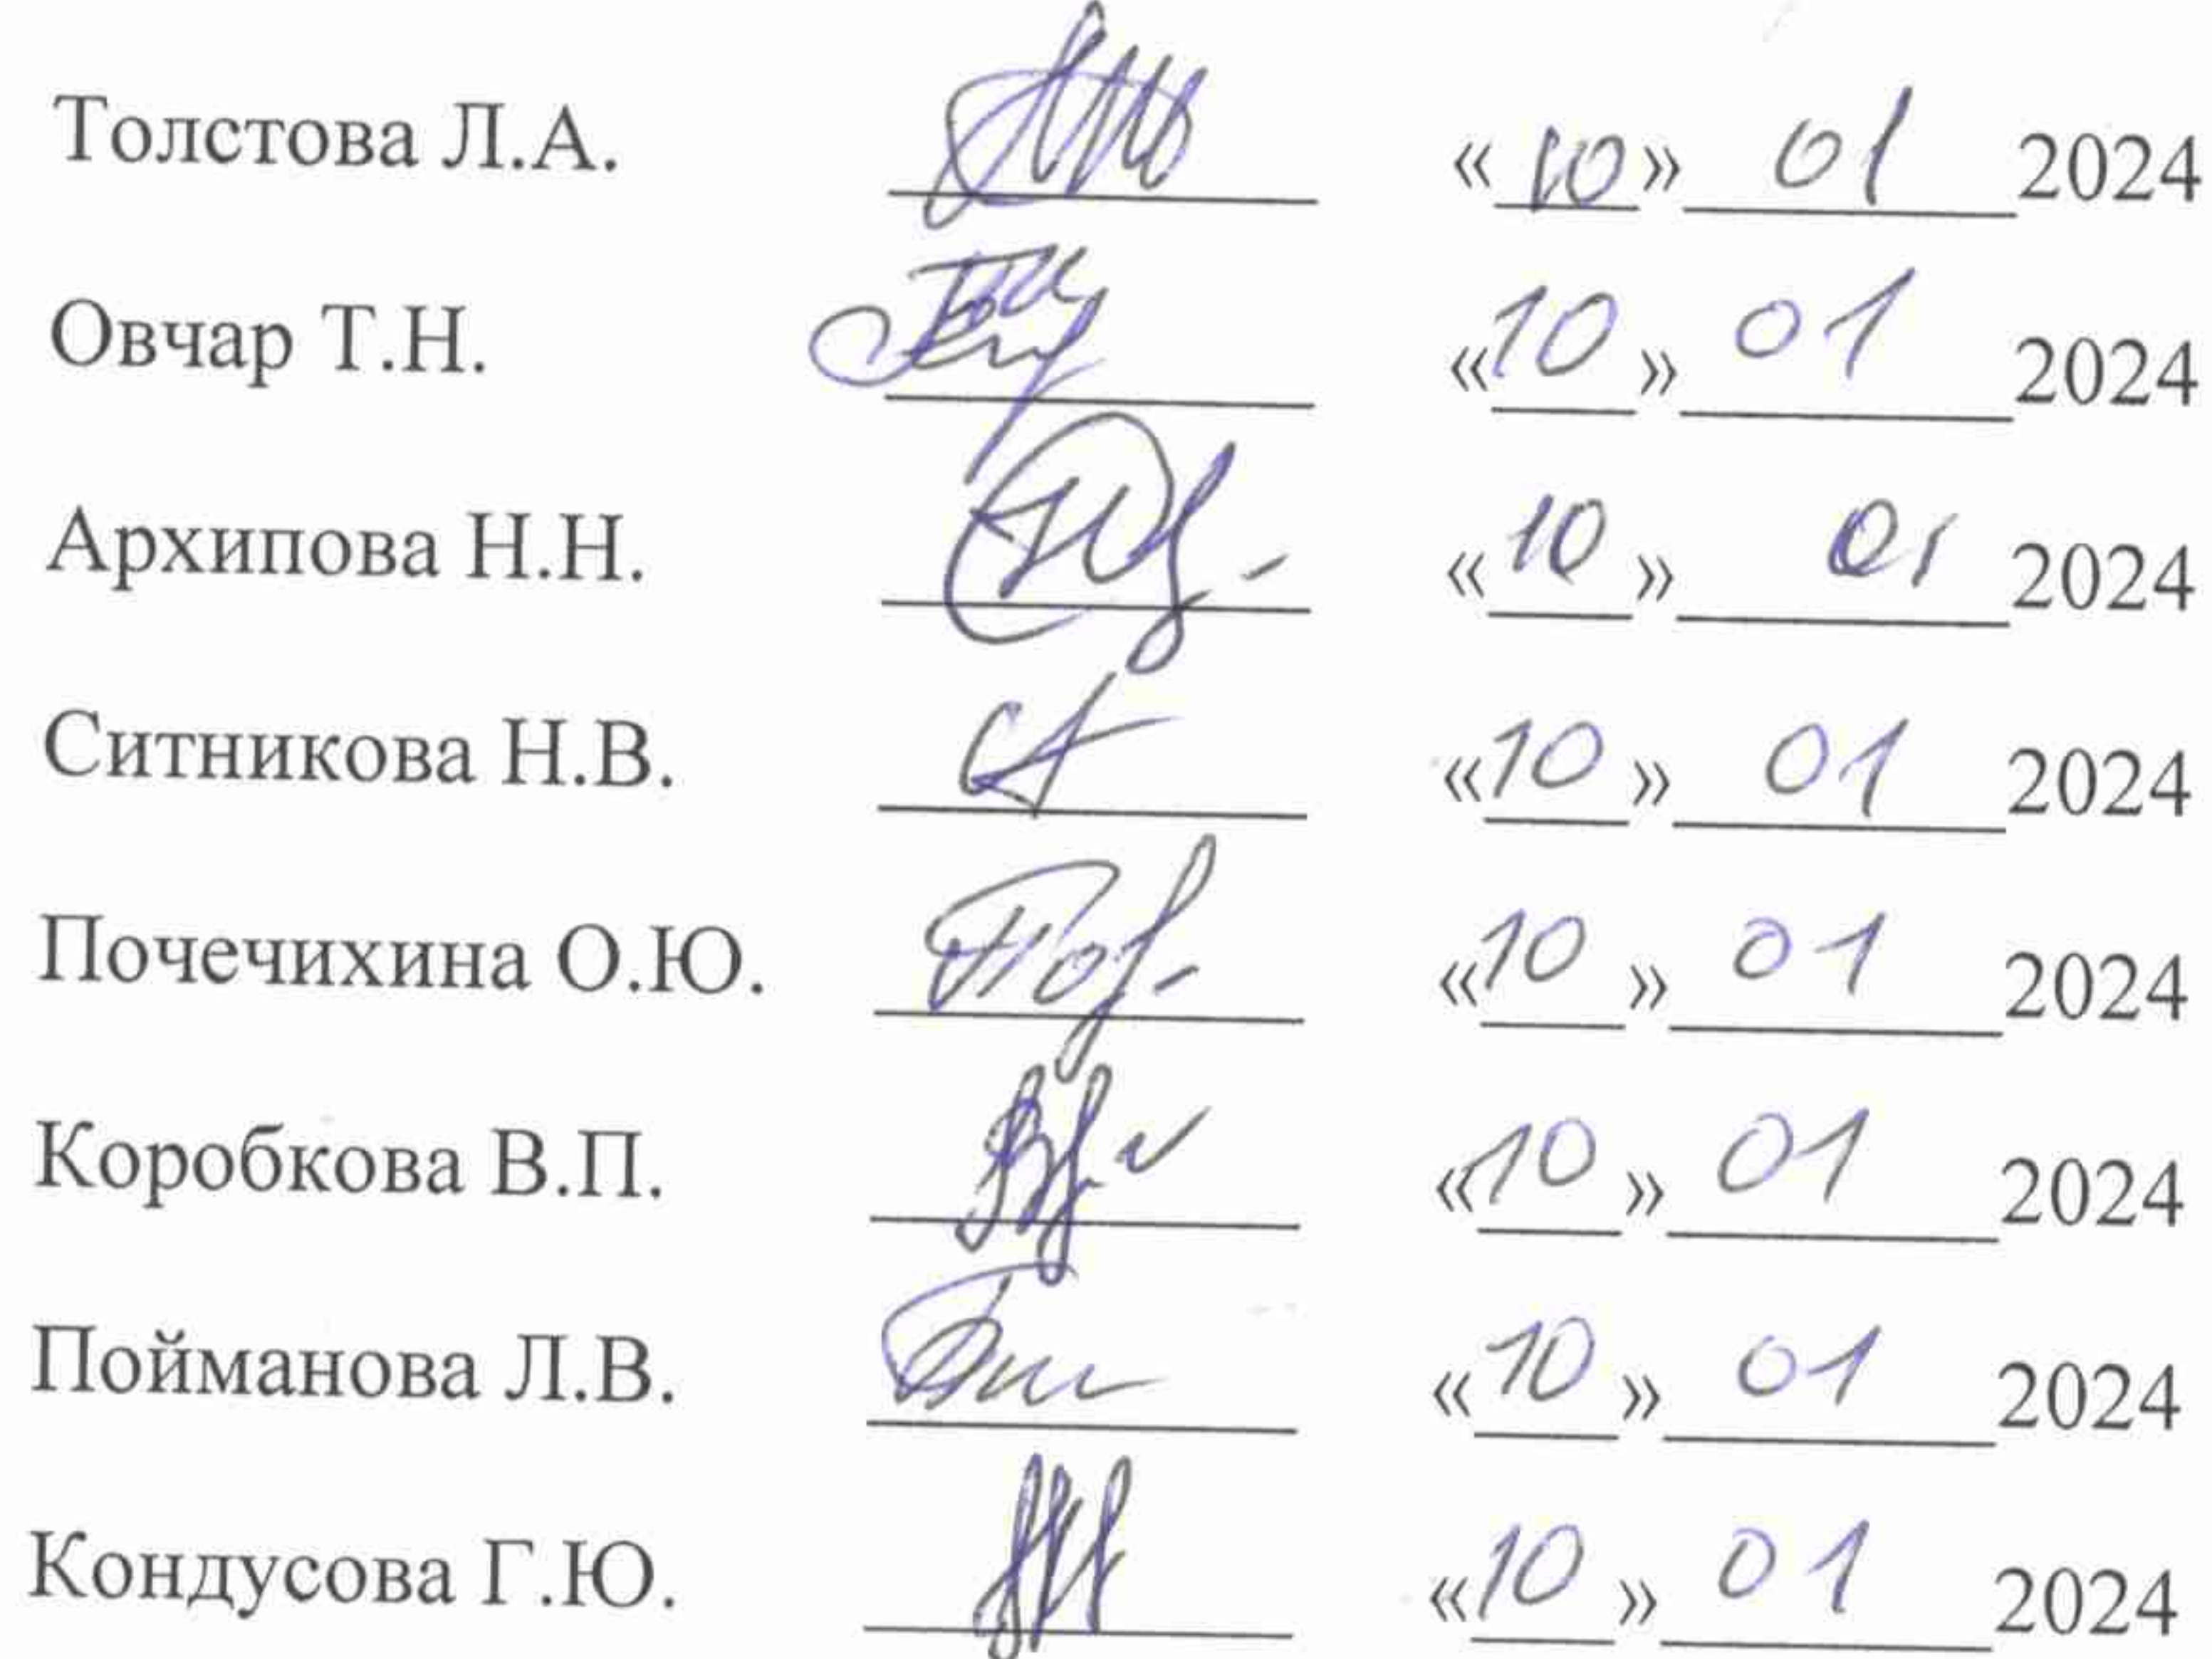 Толстова Л.А. «10» 01 2024
Овчар Т.Н. «10» 01 2024
Архипова Н.Н. «10» 01 2024
Ситникова Н.В. «10» 01 2024
Почечихина О.Ю. «10» 01 2024
Коробкова В.П. «10» 01 2024
Пойманова Л.В. «10» 01 2024
Кондусова Г.Ю. «10» 01 2024